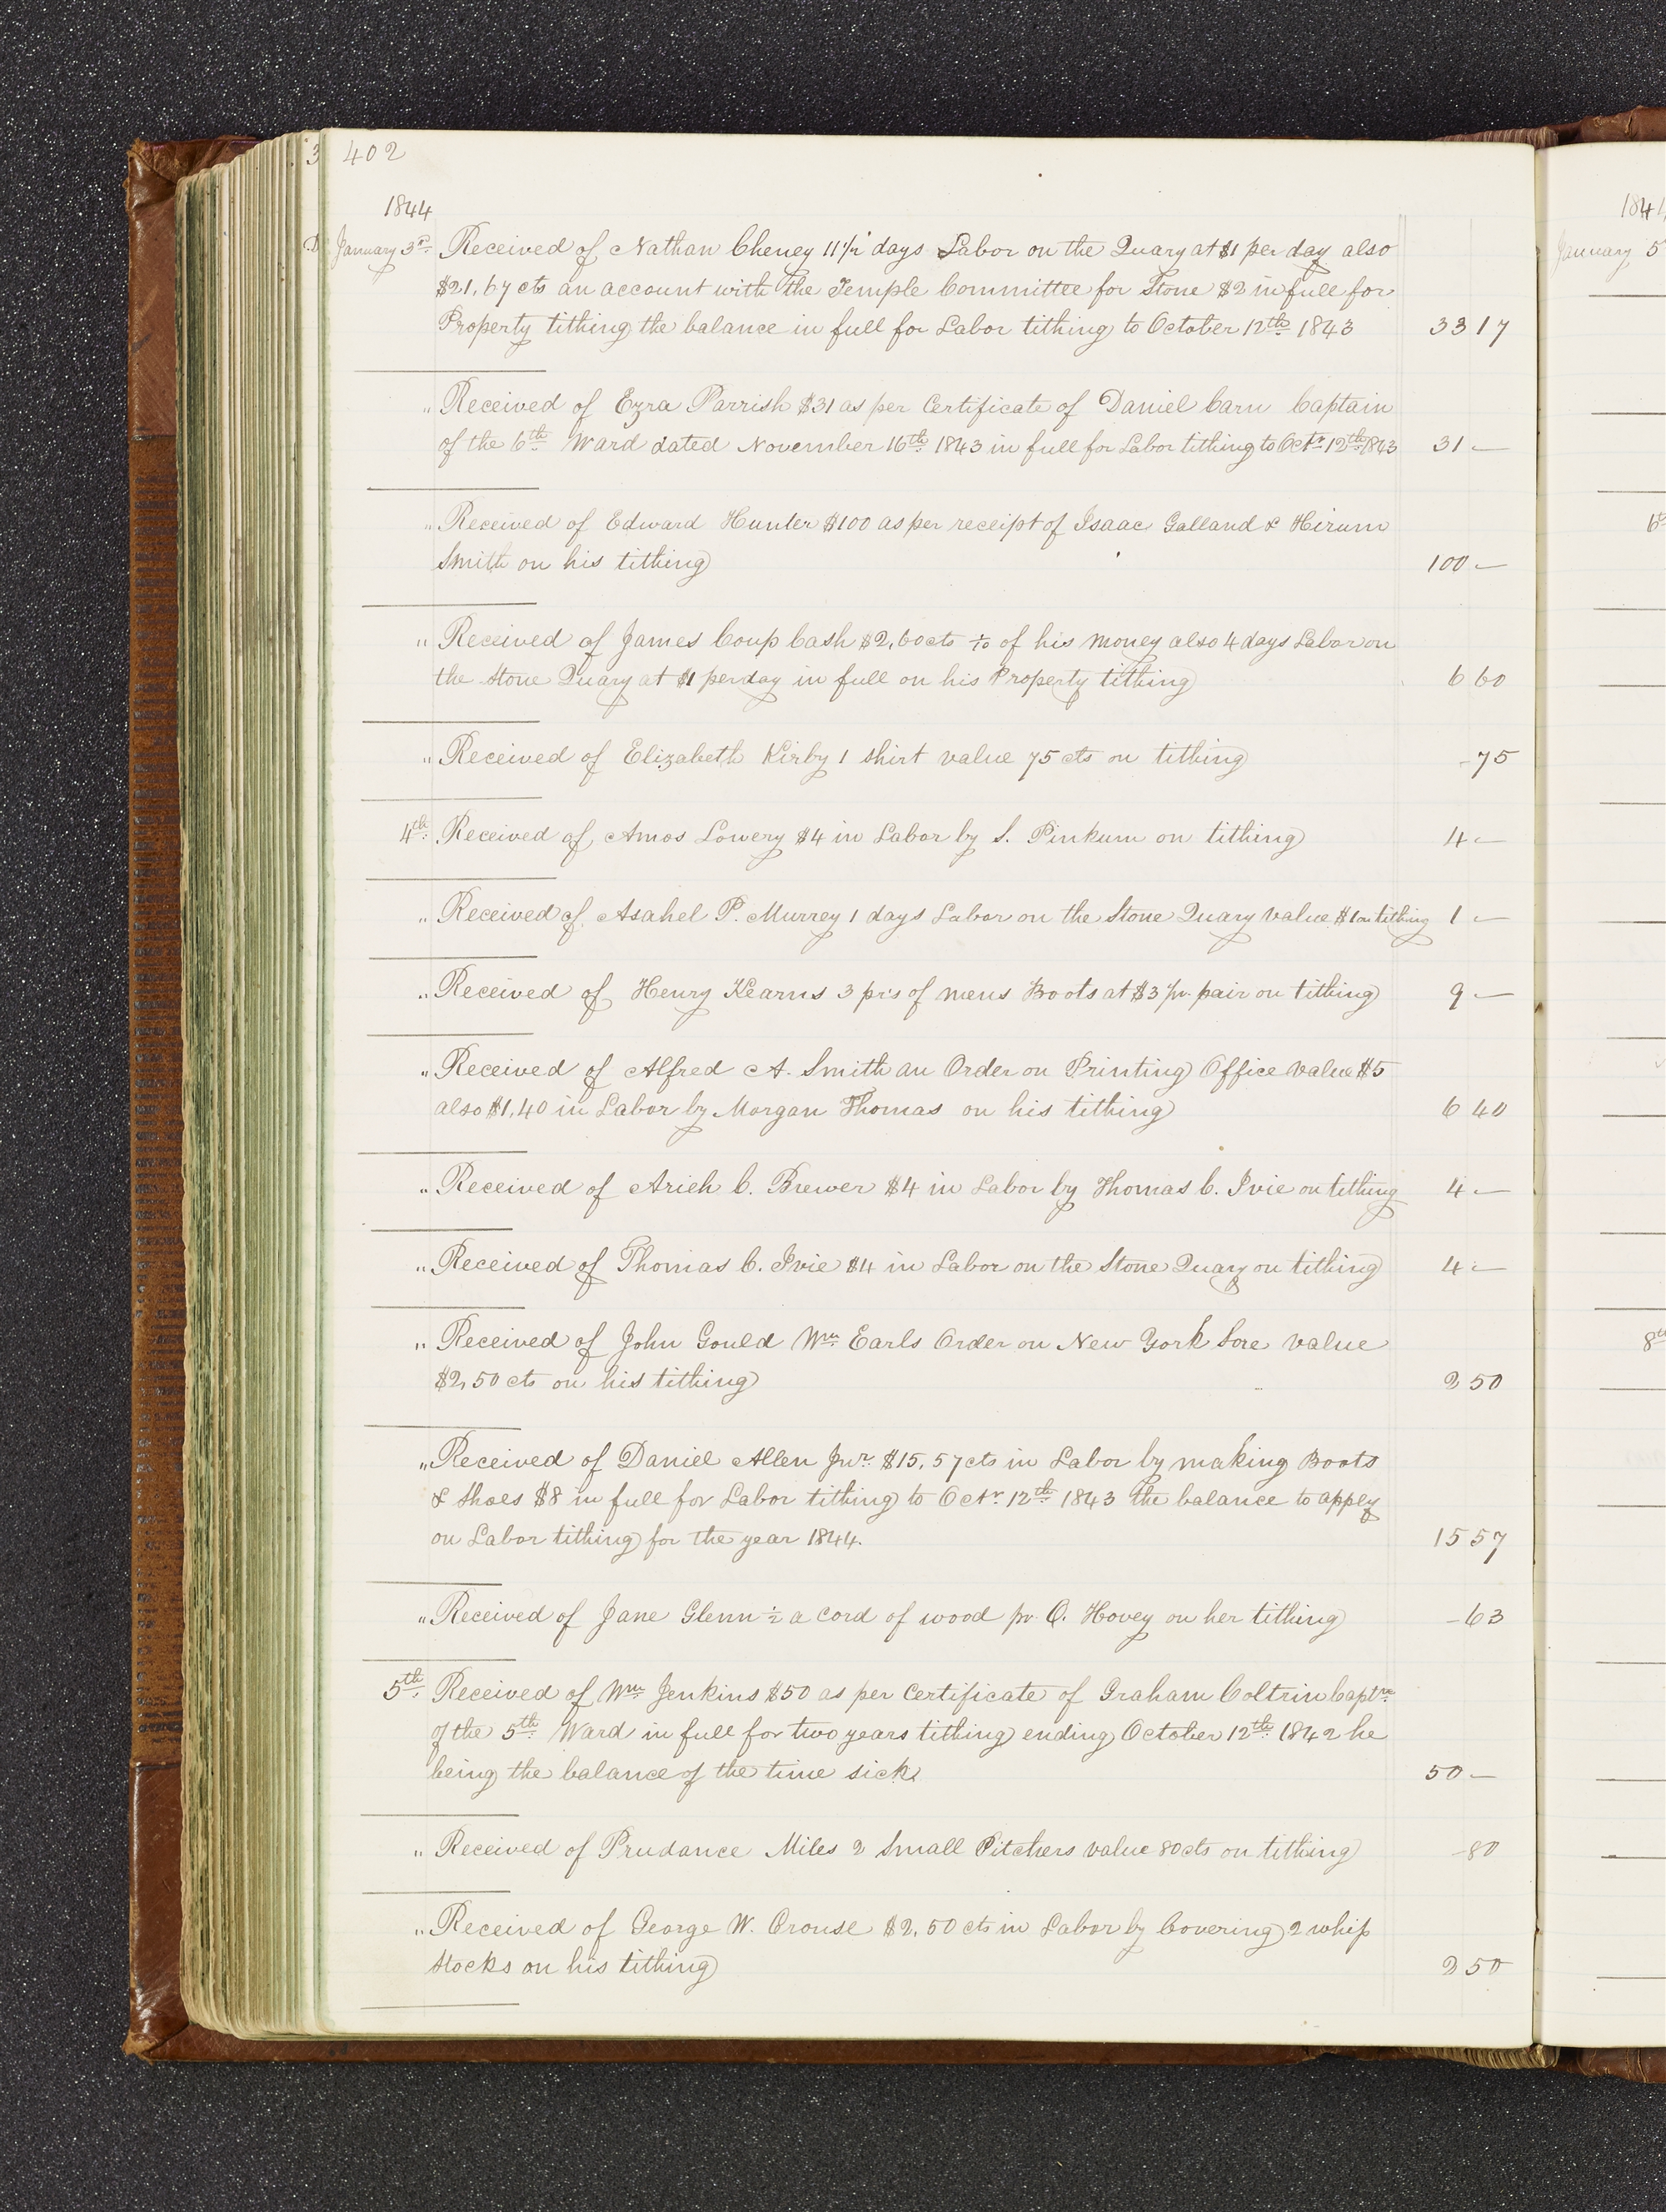 3 402
1844
January 3rd Received of Nathan Cheney 11 1/2 days Labor on the Quary at $1 per day also
$21,67 cts an account with the Temple Committee for Stone $2 in full for
Property tithing the balance in full for Labor tithing to October 12th 1843 33 17
" Received of Ezra Parrish $31 as per Certificate of Daniel Carn Captain
of the 6th Ward dated November 16th 1843 in full for Labor tithing to Octr 12th 1843 31 —
" Received of Edward Hunter $100 as per receipt of Isaac Galland & Hirum
Smith on his tithing 100 —
" Received of James Coup Cash $2,60 cts 1/10 of his money also 4 days Labor on
the Stone Quary at $1 per day in full on his Property tithing 6 60
" Received of Elizabeth Kirby 1 shirt value 75 cts on tithing - 75
4th Received of Amos Lowery $4 in Labor by S. Pinkum on tithing 4 —
" Received of Asahel P. Murrey 1 days Labor on the Stone Quary value $1 on tithing 1 —
" Received of Henry Kearns 3 prs of mens Boots at $3 pr pair on tithing 9 —
" Received of Alfred A. Smith an Order on Printing Office value $5
also $1,40 in Labor by Morgan Thomas on his tithing 6 40
" Received of Arieh C. Brewer $4 in Labor by Thomas C. Ivie on tithing 4 —
" Received of Thomas C. Ivie $4 in Labor on the Stone Quary on tithing 4 —
" Received of John Gould Wm Earls Order on New York Sore value
$2,50 cts on his tithing 2 50
" Received of Daniel Allen Jnr $15,57 cts in Labor by making Boots
& Shoes $8 in full for Labor tithing to Octr 12th 1843 the balance to apply
on Labor tithing for the year 1844. 15 57
" Received of Jane Glenn 1/2 a cord of wood pr O. Hovey on her tithing - 63
5th Received of Wm Jenkins $50 as per Certificate of Graham Coltrin Captn
of the 5th Ward in full for two years tithing ending October 12th 1842 he
being the balance of the time sick. 50 —
" Received of Prudance Miles 2 Small Pitchers value 80 cts on tithing - 80
" Received of George W. Crouse $2,50 cts in Labor by Covering 2 whip
stocks on his tithing 2 50
January 5
6th
8th